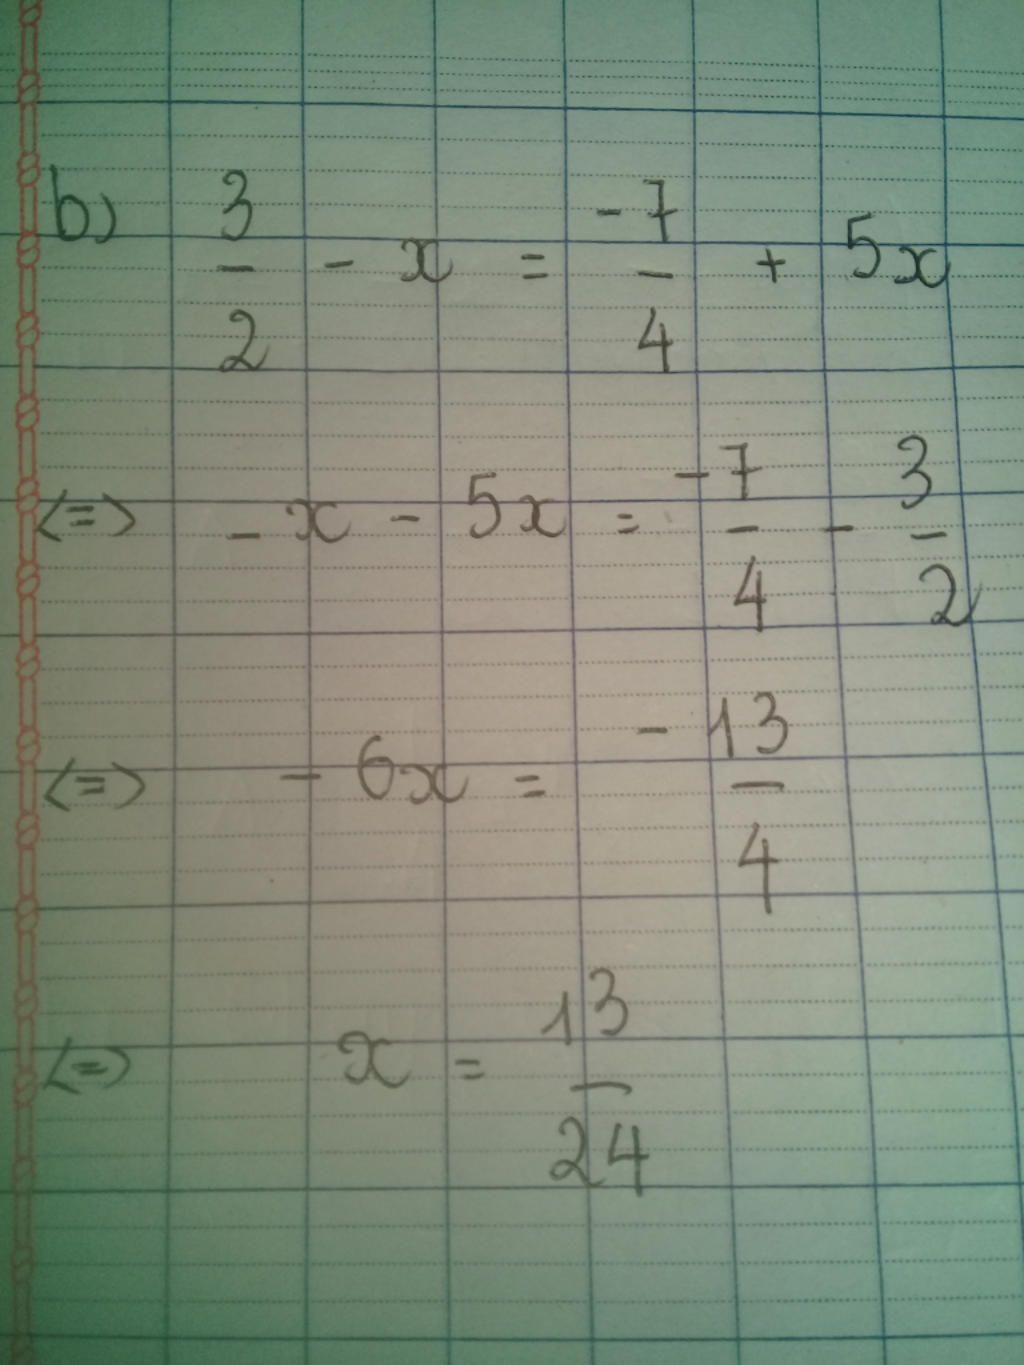 b) 3/2 - x = -7/4 + 5x
<=> -x - 5x = -7/4 - 3/2
<=> -6x = -13/4
<=> x = 13/24